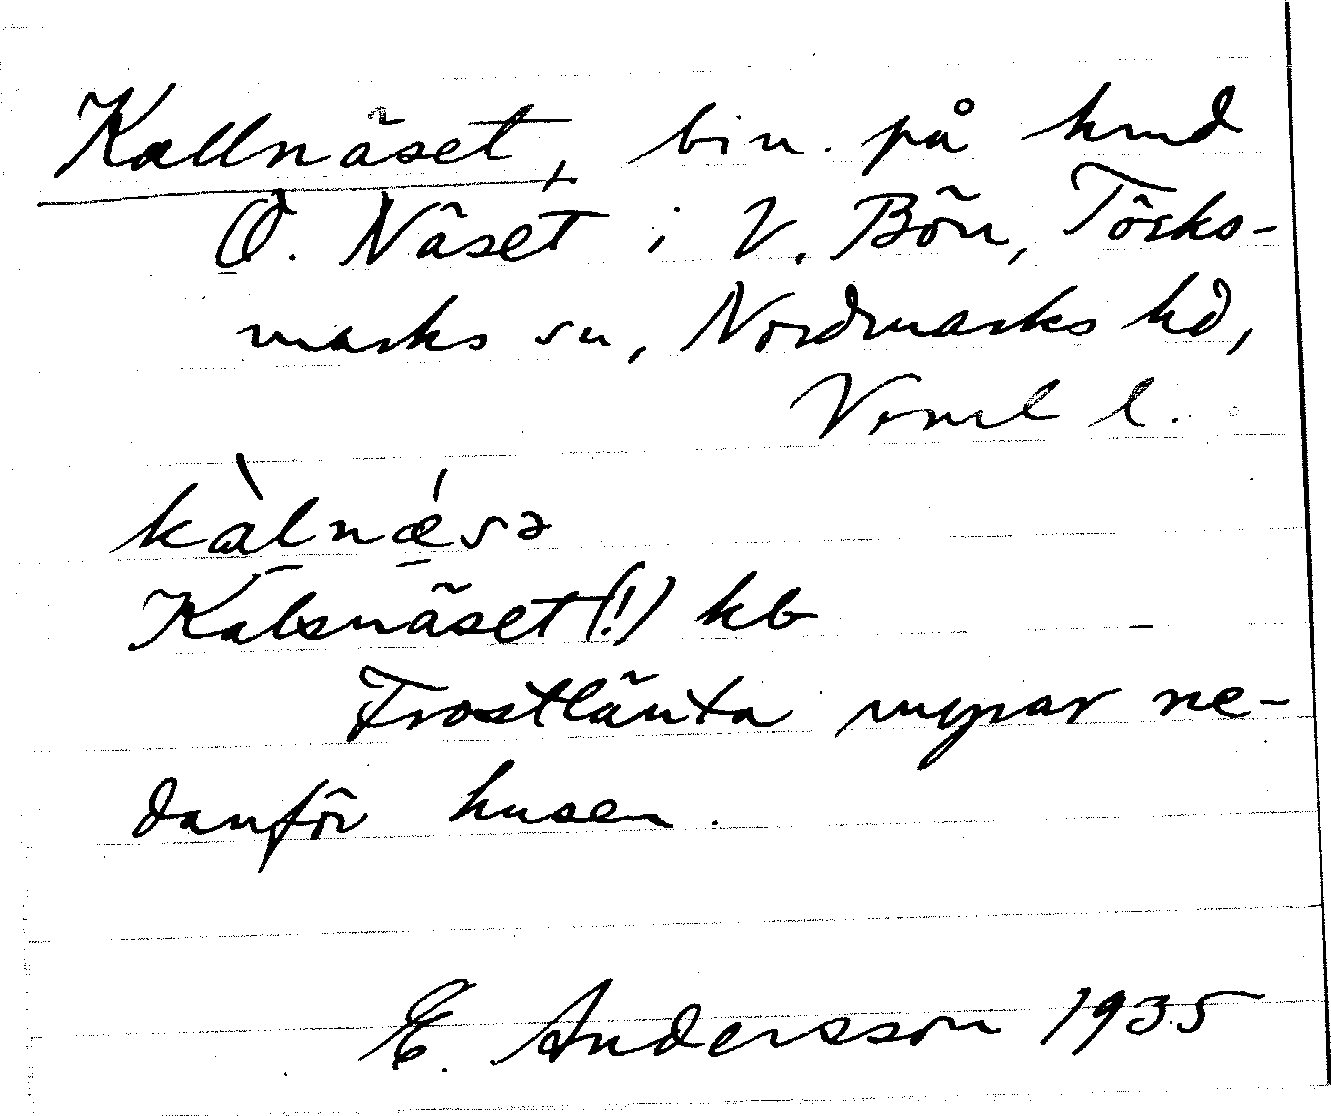 Kallnäset, bin. på hmd
Ö. Näset i V. Bön, Töcks-
marks sn, Nordmarks hd,
Verml l.
kàlnǽsə
Kalvsnäset (!) kb
Frostlänta myrar ne-
danför husen.
E. Andersson 1935